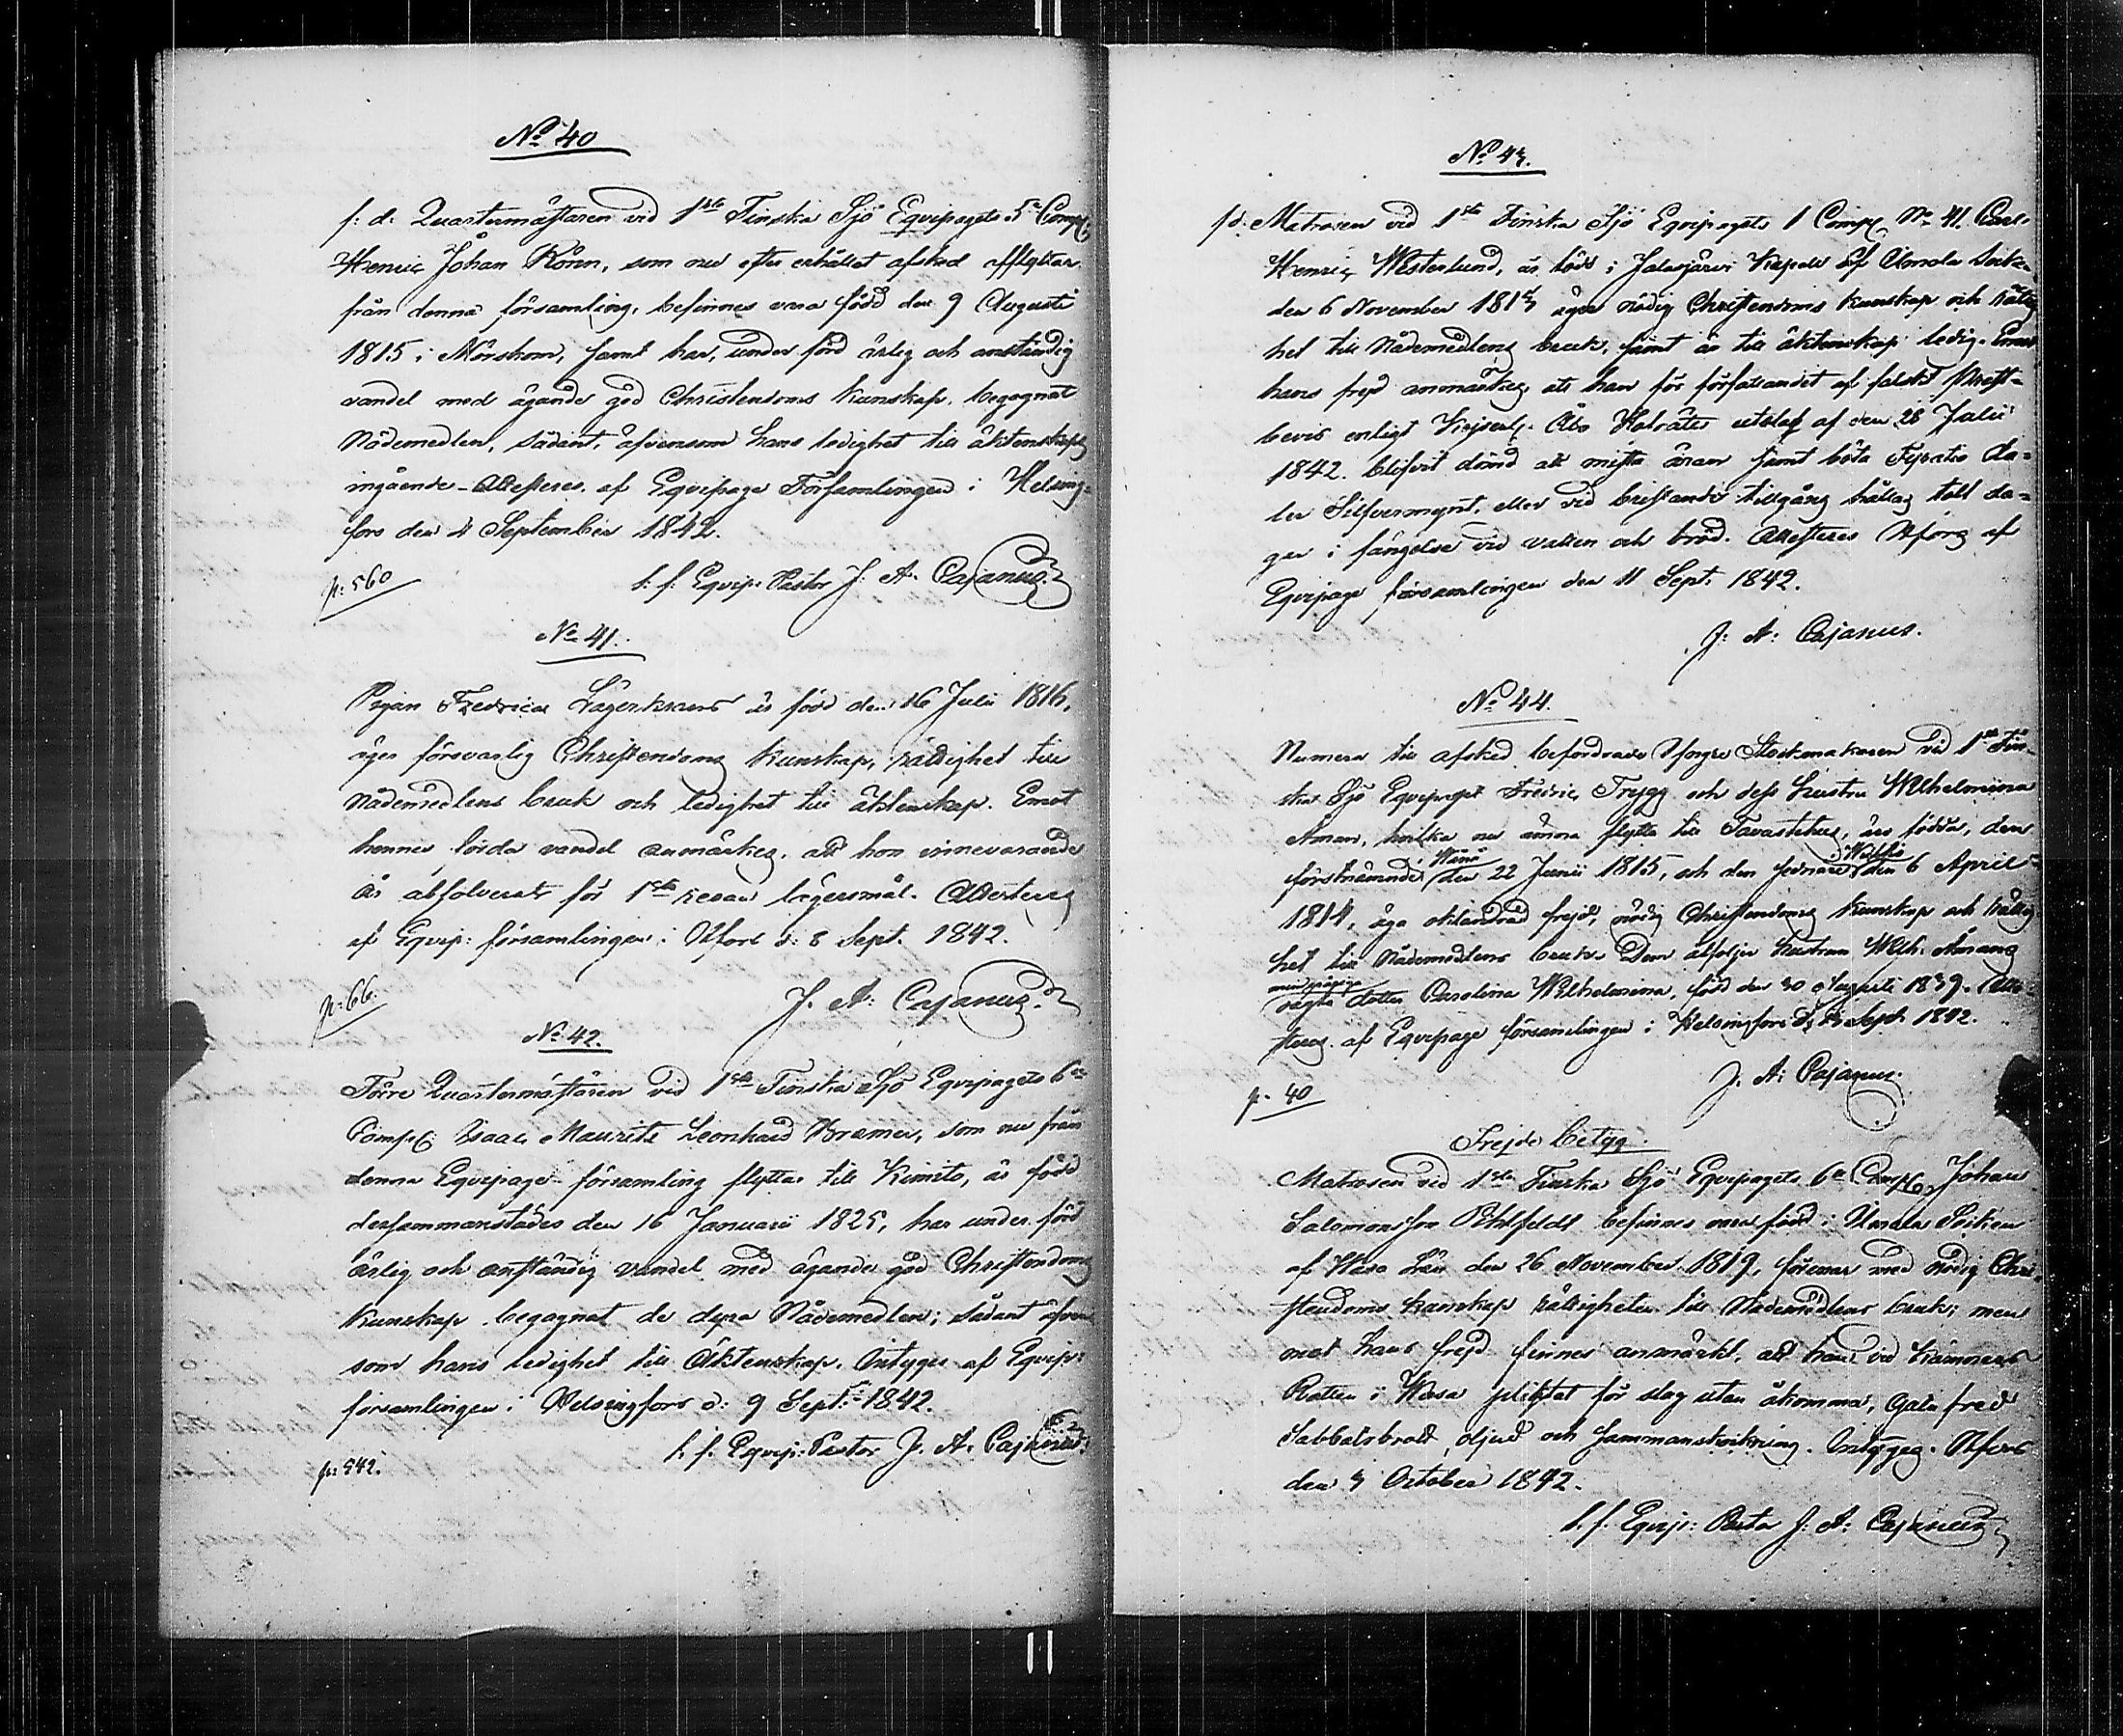 No 40
f: d: Quartermästaren vid 1sta Finska Sjö Equipagets 5e Comp:
Henric Johan Rönn, som nu efter erhållet afsked afflyttar
från denna församling, befinnes vara född den 9 Augusti
1815 i Mörskom, samt har, under förd ärlig och anständig
vandel med ägande god Christendoms kunskap, begagnat
Nådemedlen, sådant, äfvensom hans ledighet till äktenskaps
ingående - Attesteras af Equipage Församlingen i Helsing-
fors den 4 September 1842.
p: 560
t. f. Equip: Pastor J: A: Cajanus
No 41.
Pigan Fredrica Lägerkrans är född den 16 Julii 1816,
äger försvarlig Christendoms kunskap, rättighet till
Nådemedlens bruk och ledighet till äktenskap. Emot
hennes förda vandel anmärkes, att hon innevarande
år absolverats för 1sta resan lägersmål. Attesteras
af Equip: församlingen i Hfors d: 8 Sept. 1842.
p: 66.
J. A: Cajanus
No 42.
Förre Quartermästaren vid 1sta Finska Sjö Equipagets 6e
Comp: Isaac Maurits Leonhard Bremer, som nu från
denna Equipage-församling flyttar till Kimito, är född
dersammanstädes den 16 Januarii 1825, har under förd
ärlig och anständig vandel med ägande god Christendoms
kunskap begagnat de dyra Nådemedlen; sådant äfven-
som hans ledighet till Äktenskap, intygas af Equip:
församlingen i Helsingfors d: 9 Sept: 1842.
t. f. Equip: Pastor J. A. Cajanus
p: 542.
No 43.
fd: Matrosen vid 1sta Finska Sjö Equipagets 1 Comp: No 41. Carl
Henric Westerlund, är född i Jalasjärvi Kapell af Ilmola Sock-
den 6 November 1813 äger nödig Christendoms kunskap och rättig
het till Nådemedlens bruk, samt är till äktenskap ledig. Emot
hans frejd anmärkes att han för författandet af falskt Prest-
bevis enligt Kejserl. Åbo Hofrätts utslag af den 28 Julii
1842 blifvit dömd att mista äran samt böta Fyratio da-
ler Silfvermynt, eller vid bristande tillgång hållas tolf da-
gar i fängelse vid vatten och bröd. Attesteras Hfors af
Equipage församlingen den 11 Sept. 1842.
J: A: Cajanus.
No 44.
Numera till afsked befordrade Stockmakaren vid 1sta Fin-
ska Sjö Equipaget Fredric Trygg och dess hustru Wilhelmina
Åman, hvilka nu ämna flytta till Tavastehus, äro födda, den
förstnämnde den 22 Junii 1815, och den sednare den 6 April
1814, äga oklandrad frejd, nödig Christendoms kunskap och rättig
het till Nådemedlens bruk. Dem åtföljer hustrun Wilh. Åmans
oägta dotter Carolina Wilhelmina, född den 30 Augusti 1839. Atte-
steras af Equipage församlingen i Helsingfors d: Sept 1842.
J. A: Cajanus.
p. 40
Frejde betyg.
Matrosen vid 1sta Finska Sjö Equipagets 6e Comp: Johan
Salomonsson Pihlfeldt befinnes vara född i Ilmola Socken
af Wasa Län den 26 November 1819, försvar med nödig Chri-
stendoms kunskap rättigheten till Nådemedlens bruk; men
mot hans frejd finnes anmärkt, att han vid Kämners
Rätten i Wasa pliktat för slag utan åkomma,
Sabbatsbrott, oljud och sammanskrikning. Intygas. Hfors
den 3 October 1842.
t. f. Equip: Pastor J: A: Cajanus